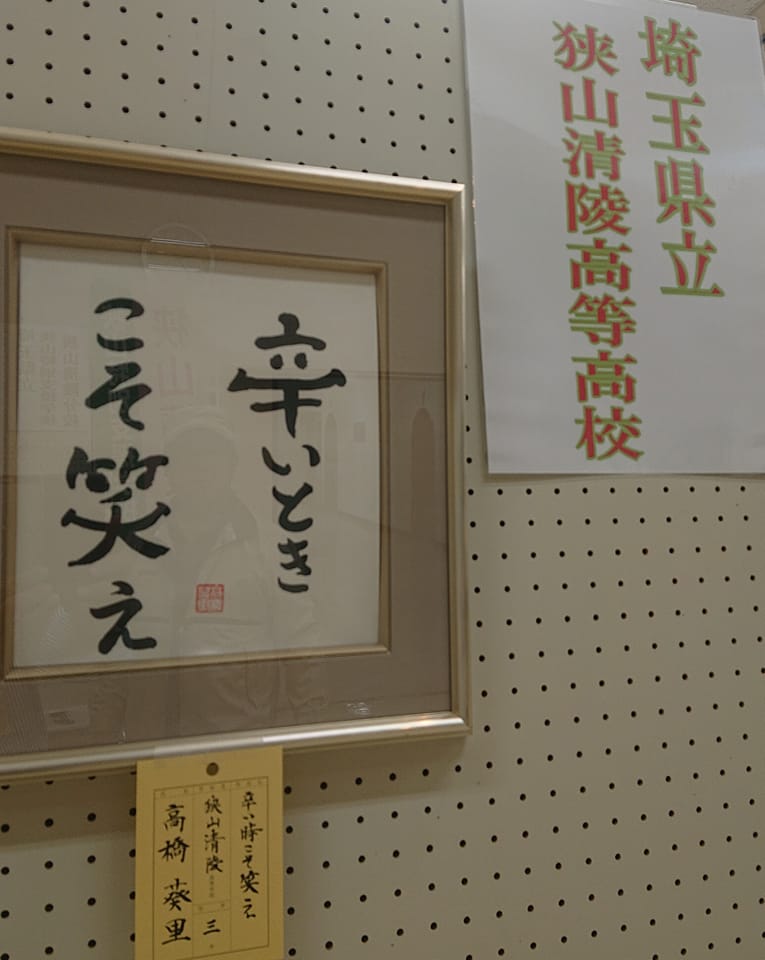 埼玉県立
狭山清陵高等高校
辛いとき
こそ笑え
辛い時こそ笑え
狭山清陵
三
高橋葵里